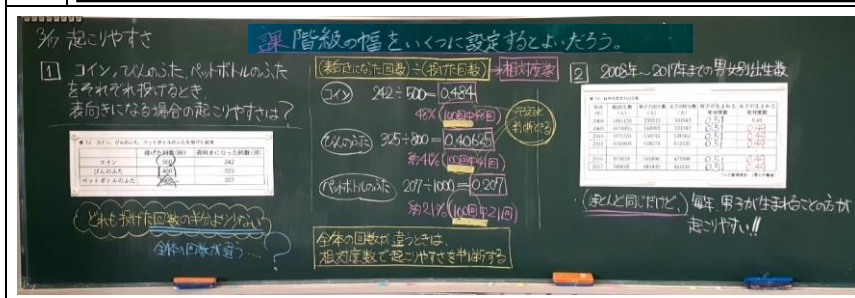 3/17 起こりやすさ
課 階級の幅をいくつに設定するとよいだろう。
1 コイン、びんのふた、ペットボトルのふた
をそれぞれ投げるとき、
表向きになる場合の起こりやすさは?
投げた回数(回) 表向きになった回数(回)
コイン 500 242
びんのふた 800 325
ペットボトルのふた 1000 207
どれも投げた回数の半分より少ない
全体の回数が違う…?
(表向きになった回数)÷(投げた回数)→相対度数
コイン 242÷500=0.484
48%(100回中48回)
びんのふた 325÷800=0.40625
約41%(100回中41回)
ペットボトルのふた 207÷1000=0.207
約21%(100回中21回)
判断できる
全体の回数が違うときは、
相対度数で起こりやすさを
2 2008年~2017年までの男女別出生数
0.51 0.49
0.51 0.49
0.51 0.49
(ほとんど同じだけど、)毎年、男子が生まれることの方が
起こりやすい!!